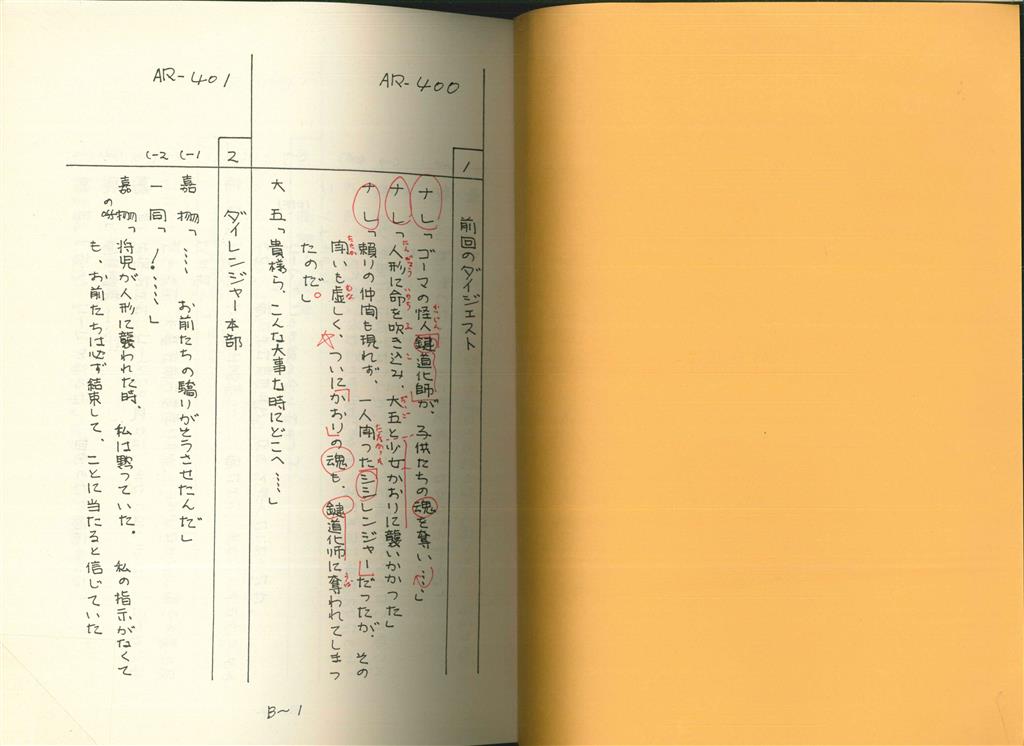 AR-400
1
前回のダイジェスト
ナレ「ゴーマの怪人鍵道化師が、子供たちの魂を奪い……」
かいじん
ナレ「人形に命を吹き込み、大五と少女かおりに襲いかかった」
にんぎょう
いのち
ふ
こ
だいご
ナレ「頼りの仲間も現れず、一人闘ったシシレンジャーだったが、その
たたかった
闘いも虚しく、ついにかおりの魂も、鍵道化師に奪われてしまっ
たたか
むな
うば
たのだ。」
大五「貴様ら、こんな大事な時にどこへ……」
AR-401
2
ダイレンジャー本部
C-1
嘉挧「…… お前たちの驕りがそうさせたんだ」
C-2
一同「！……」
嘉挧「将児が人形に襲われた時、私は黙っていた。私の指示がなくて
の声
も、お前たちは必ず結束して、ことに当たると信じていた
B〜1